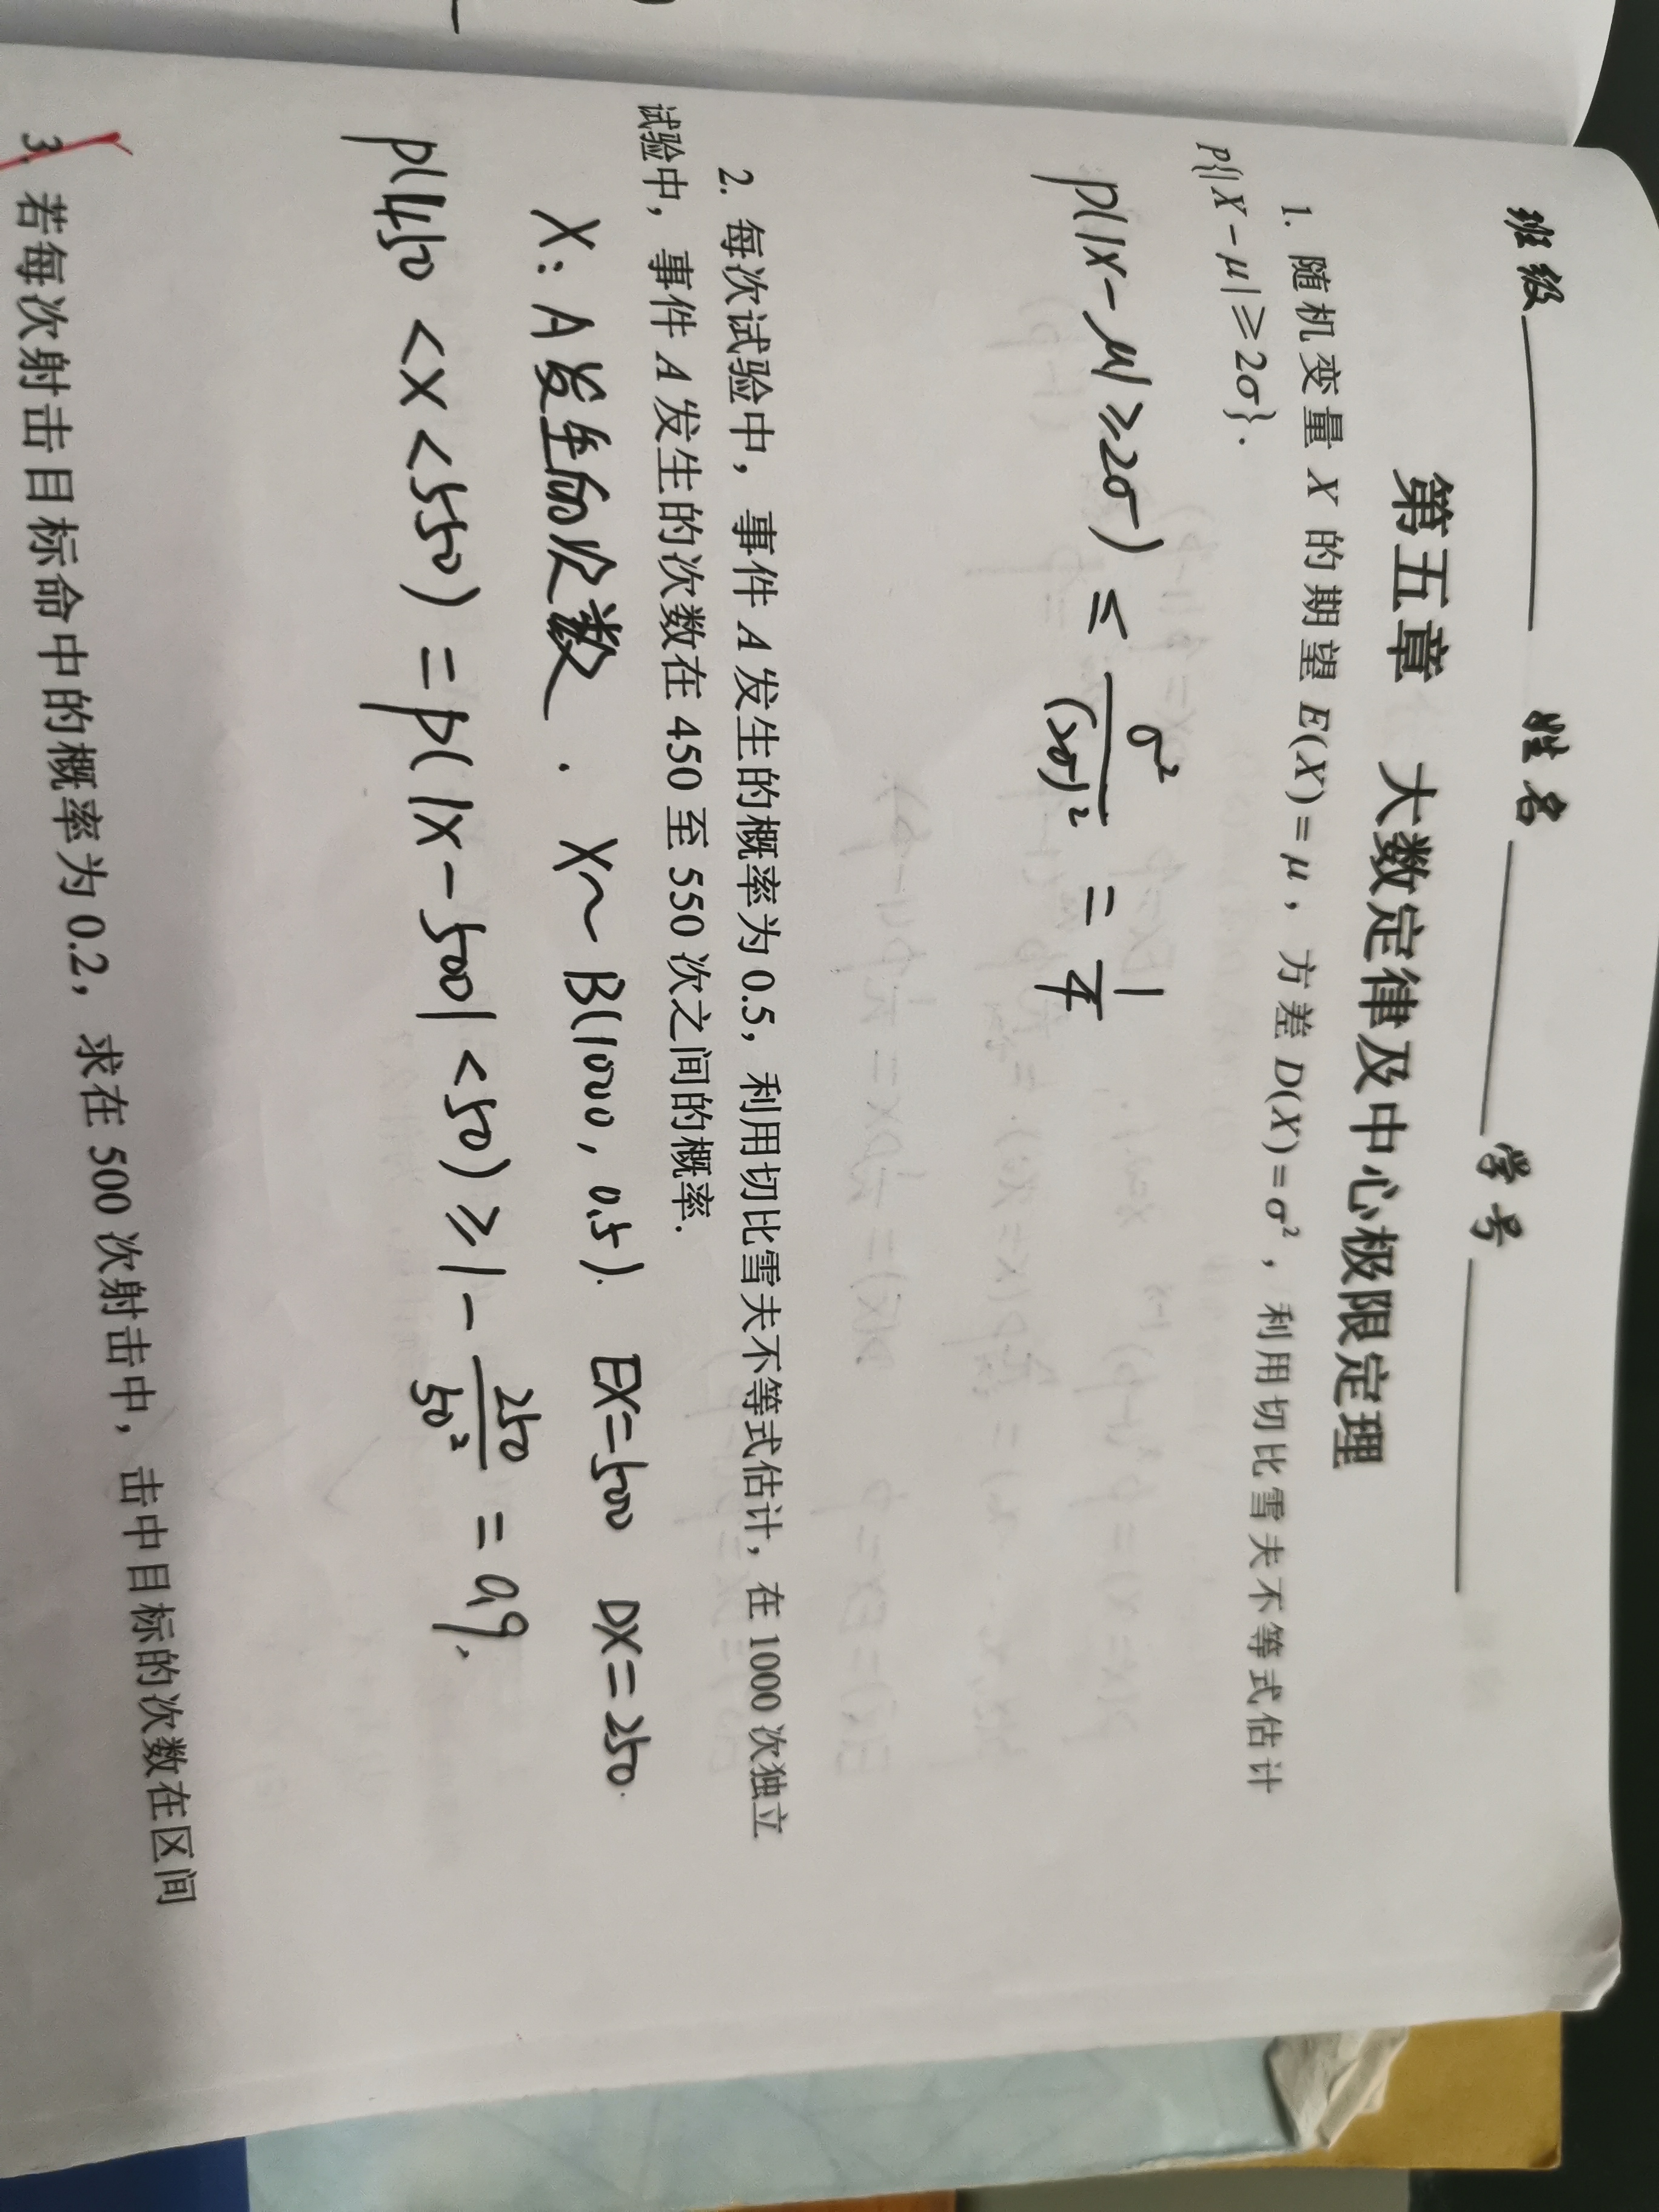 班级 姓名 学号
第五章 大数定律及中心极限定理
1. 随机变量 X 的期望 E(X)=μ，方差 D(X)=σ²，利用切比雪夫不等式估计
P{|X-μ|≥2σ}.
P(|X-μ|≥2σ) ≤ σ²/(2σ)² = 1/4
2. 每次试验中，事件 A 发生的概率为 0.5，利用切比雪夫不等式估计，在 1000 次独立
试验中，事件 A 发生的次数在 450 至 550 次之间的概率.
X: A发生的次数. X~B(1000, 0.5). EX=500 DX=250.
P(450<X<550)=P(|X-500|<50)≥1-250/50²=0.9.
3. 若每次射击目标命中的概率为 0.2，求在 500 次射击中，击中目标的次数在区间